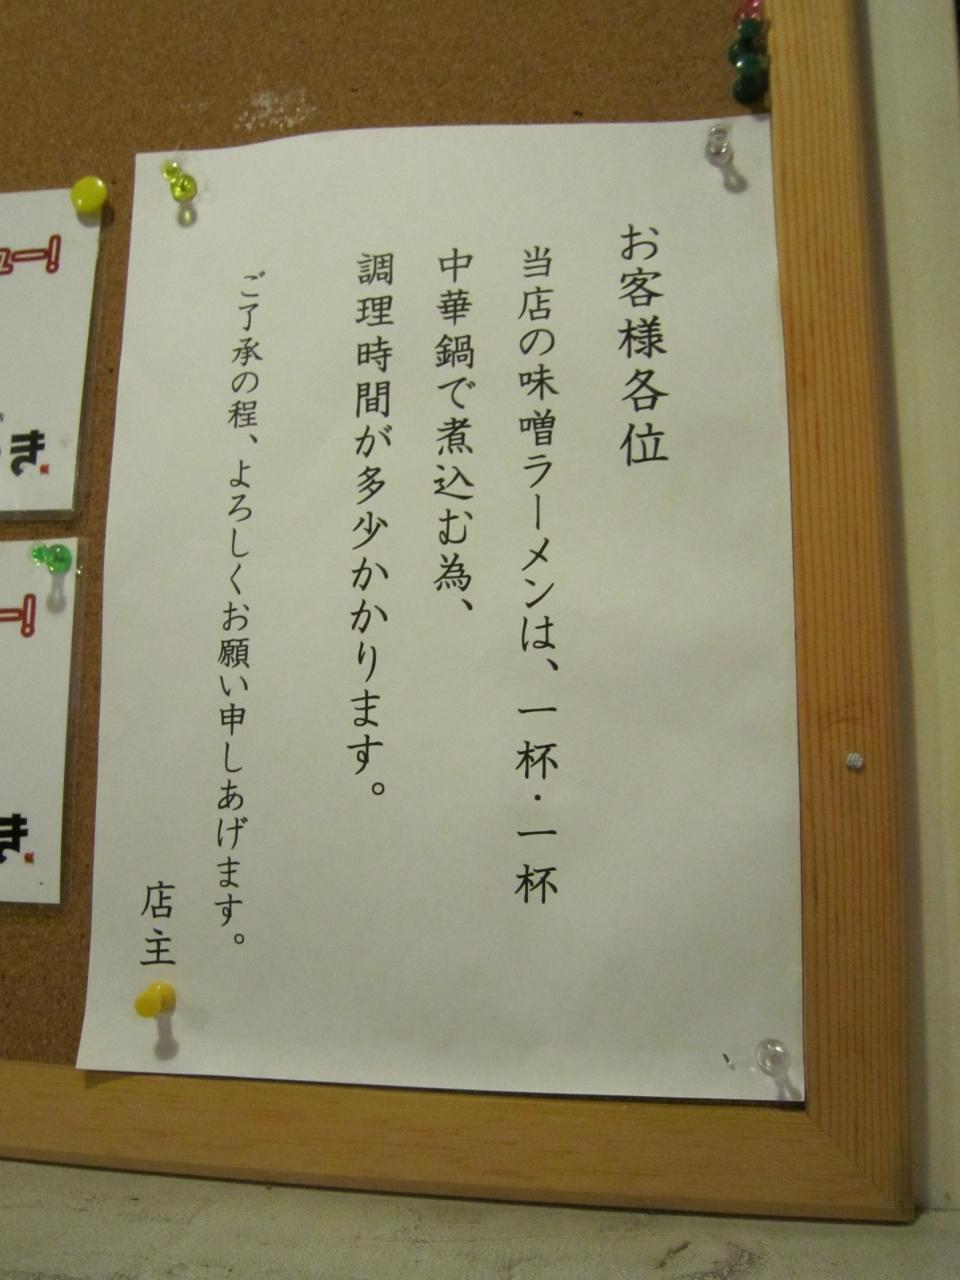 お客様各位
当店の味噌ラーメンは、一杯・一杯
中華鍋で煮込む為、
調理時間が多少かかります。
ご了承の程、よろしくお願い申しあげます。
店主
ュー!
き
ー!
き